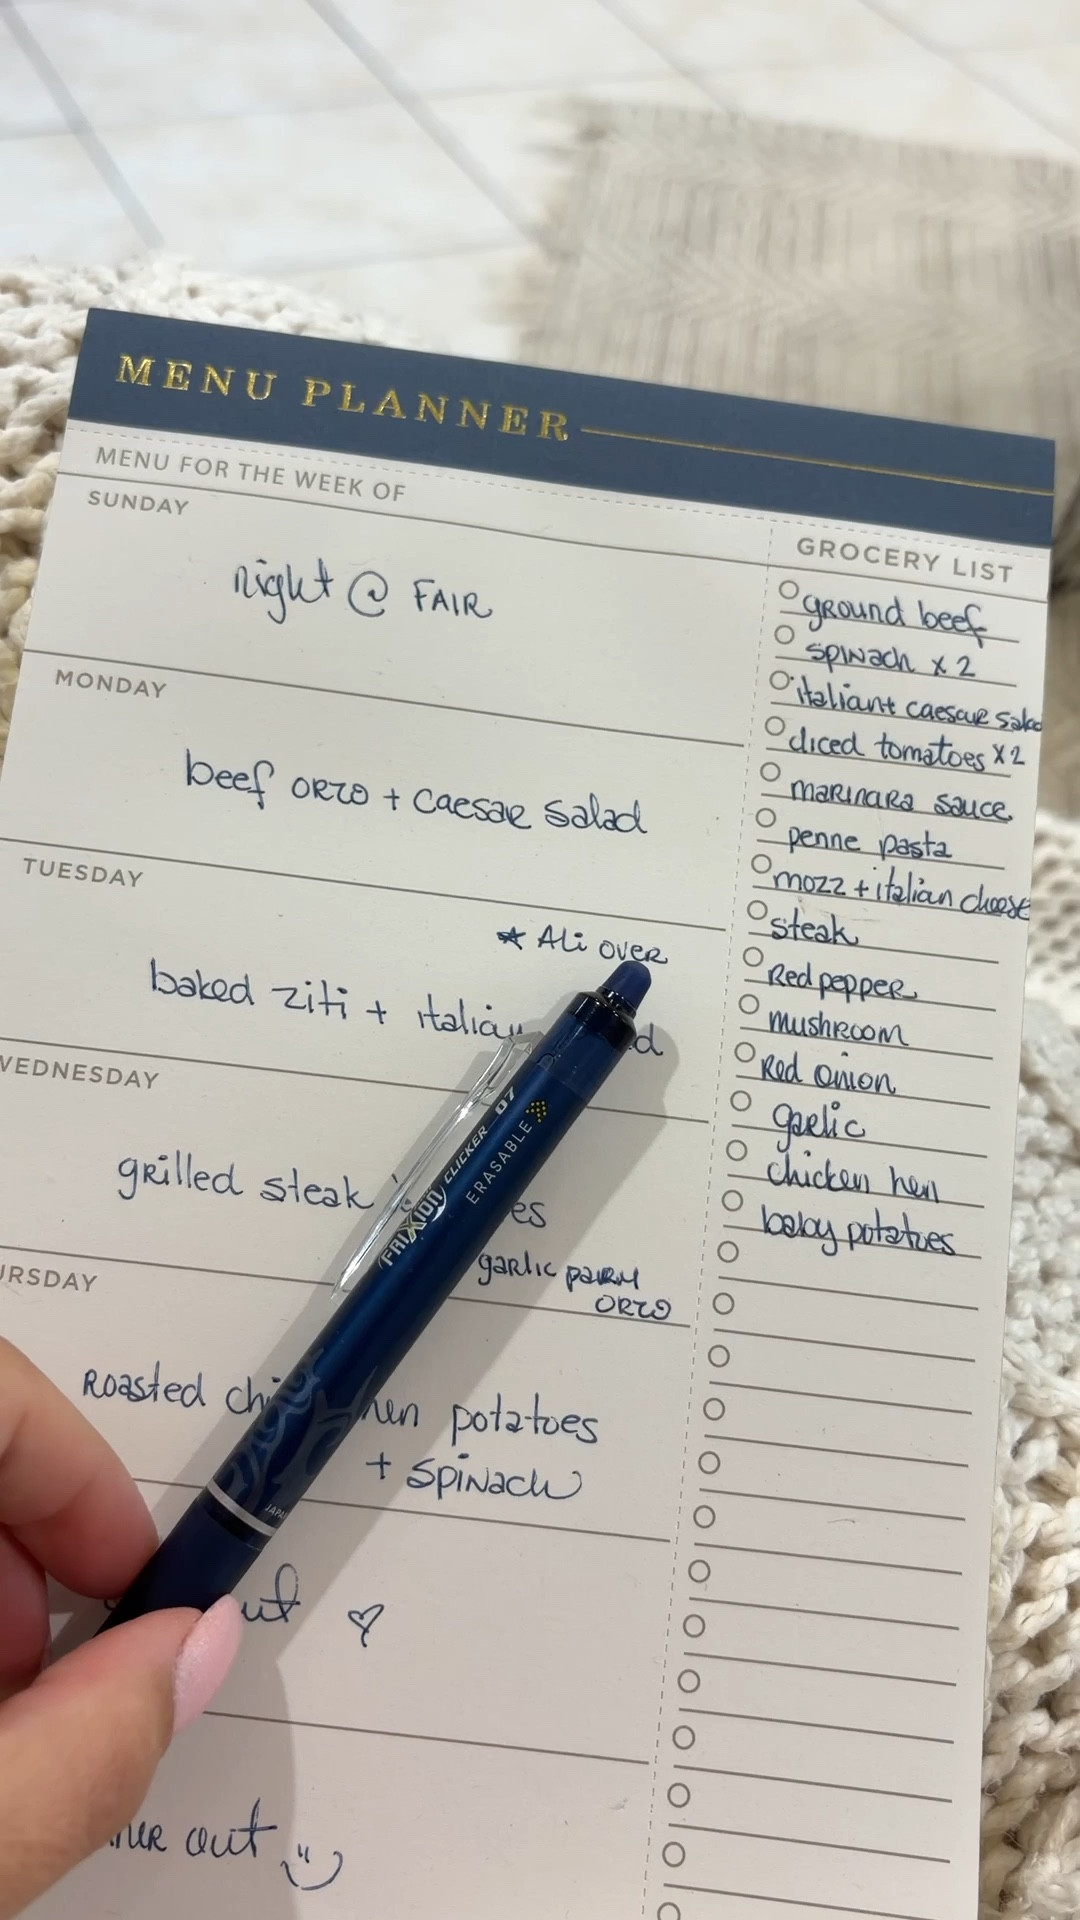 MENU PLANNER
MENU FOR THE WEEK OF
SUNDAY
night @ FAIR
MONDAY
beef orzo + caesar salad
TUESDAY
* Ali over
baked ziti + italian
WEDNESDAY
grilled steak
garlic parm
orzo
URSDAY
Roasted hen potatoes
+ spinach
out ♡
out
GROCERY LIST
ground beef
spinach x 2
italian + caesar salad
diced tomatoes x2
marinara sauce
penne pasta
mozz + italian cheese
steak
Red pepper
mushroom
Red onion
garlic
chicken hen
baby potatoes
FRIXION CLICKER 07
ERASABLE
JAPA